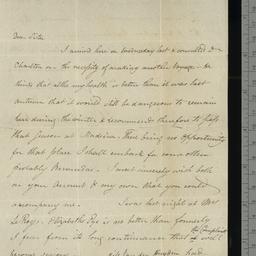 Dear Sister
I arrived here on Wednesday last & consulted Dr
Charlton on the necessity of making another voyage - He
thinks that altho my health is better than it was last
autumn that it would still be dangerous to remain
here during the winter & recommends therefore to pass
that season at Madeira. There being no opportunity
for that place I shall embark for some other
probably Bermudas. I most sincerely wish both
on your Account & my own that you could
accompany me. I was last night at Mrs
Le Roys. Elizabeths Eye is no better than formerly
the Complaint
I fear from its long continuance that it will
become